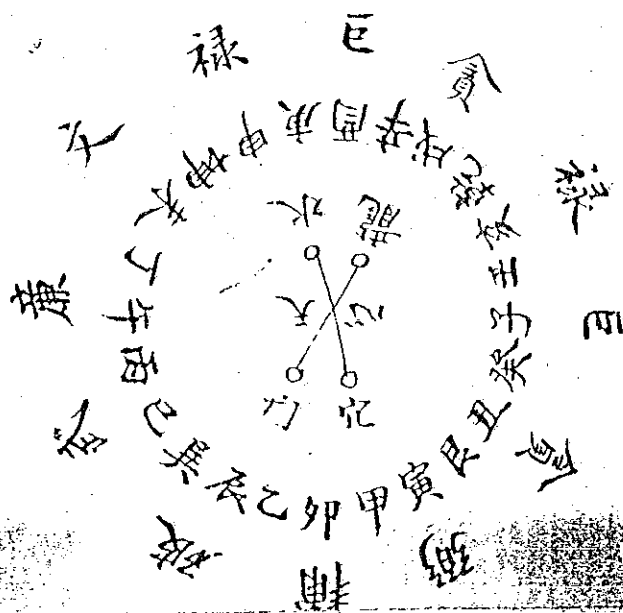 巨貪禄巨貪弼補破武廉文禄
子癸丑艮寅甲卯乙辰巽巳丙午丁未坤申庚酉辛戌乾亥壬
水龍
天心
穴